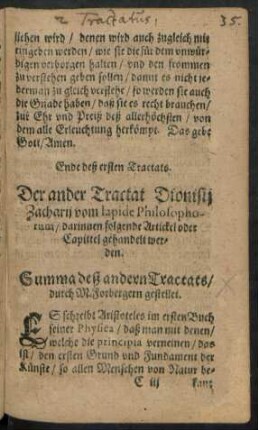 2 Tractatus, 35.
lichen wird / denen wird auch zugleich mit
eingeben werden / wie sie die für dem unwür-
digen verborgen halten / vnd den frommen
zu verstehen geben sollen / damit es nicht je-
derman zu gleich verstehe / so werden sie auch
die Gnade haben / daß sie es recht brauchen /
zuꝛ Ehr vnd Preiß deß allerhöchsten / von
dem alle Erleuchtung herkömpt. Das gebe
Gott / Amen.
Ende deß ersten Tractats.
Der ander Tractat Dionisij
Zacharij vom lapide Philosopho-
rum / darinnen folgende Artickel oder
Capittel gehandelt wer-
den.
Summa deß andern Tractats /
durch M. Forbergern gestellet.
ES schreibt Aristoteles im ersten Buch
seiner Physica / daß man mit denen /
welche die principia verneinen / das
ist / den ersten Grund vnd Fundament der
Künste / so allen Menschen von Natur be-
C iij kant